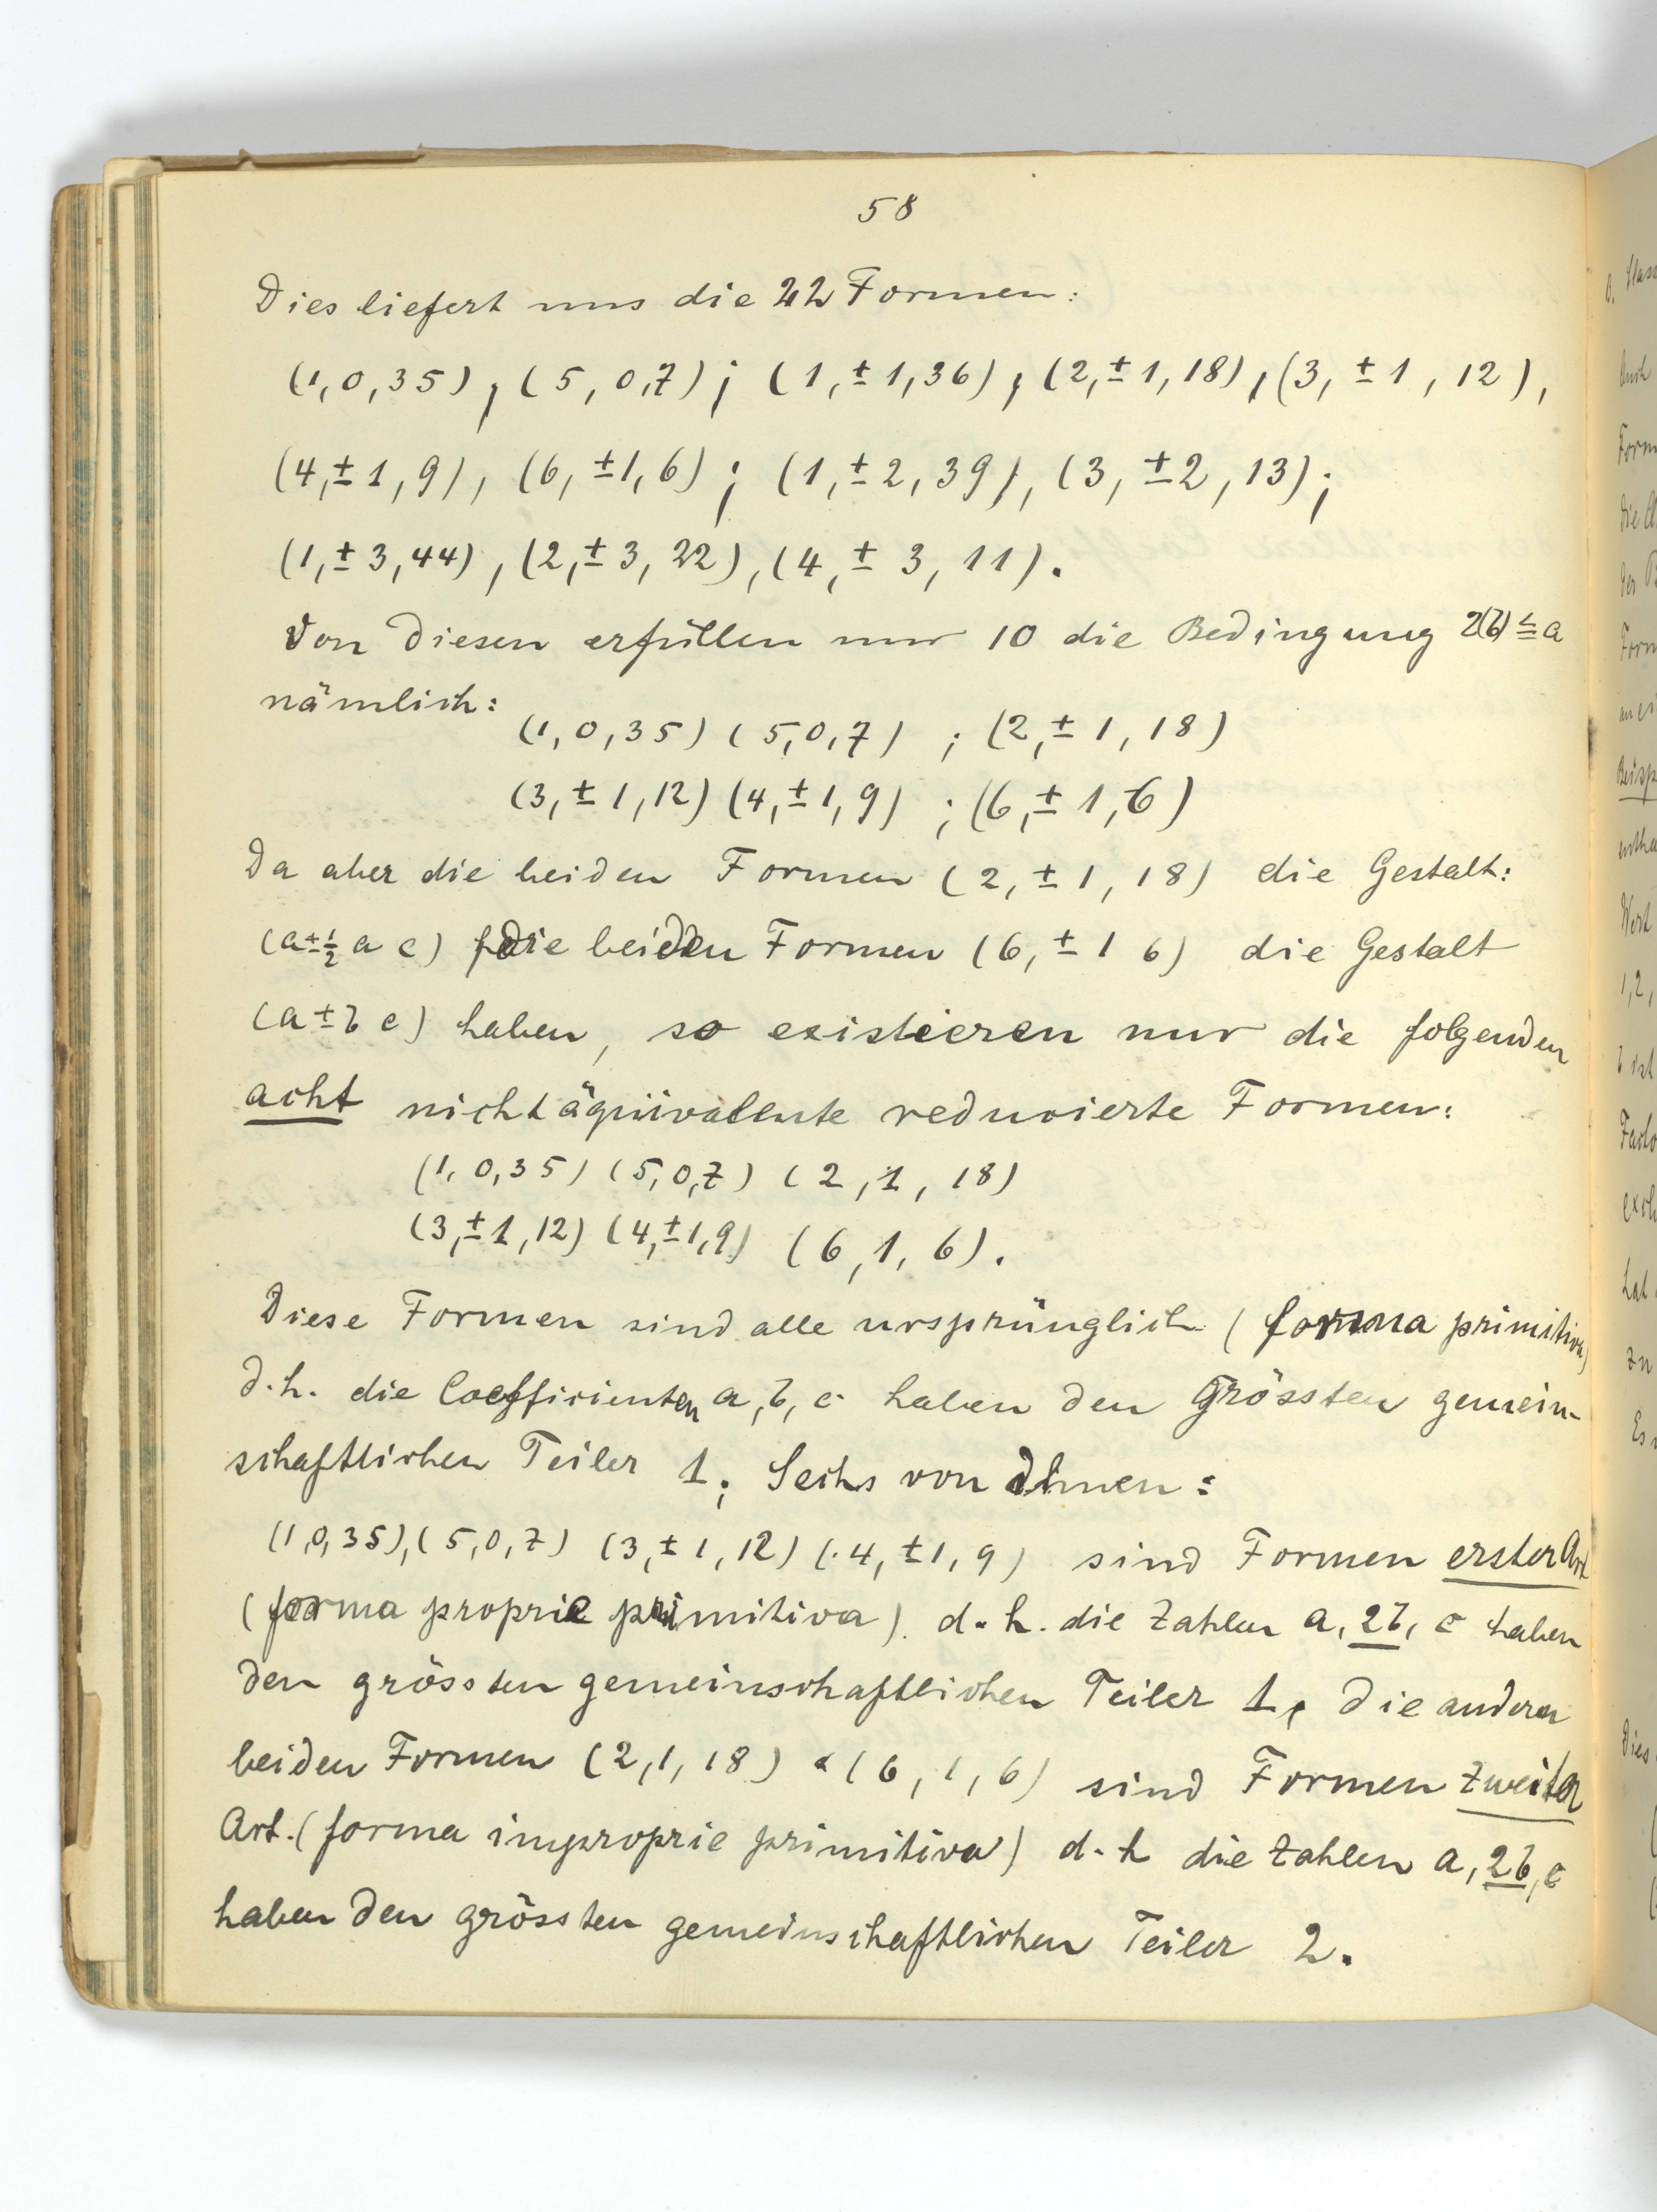 58
Dies liefert uns die 22 Formen:
(1, 0, 35), (5, 0, 7); (1, ± 1, 36), (2, ± 1, 18), (3, ± 1, 12),
(4, ± 1, 9), (6, ± 1, 6); (1, ± 2, 39), (3, ± 2, 13);
(1, ± 3, 44), (2, ± 3, 22), (4, ± 3, 11).
Von diesen erfüllen nur 10 die Bedingung 2(b) ≤ a
nämlich:
(1, 0, 35) (5, 0, 7) ; (2, ± 1, 18)
(3, ± 1, 12) (4, ± 1, 9) ; (6, ± 1, 6)
Da aber die beiden Formen (2, ± 1, 18) die Gestalt:
(a ± ½ a c) die beiden Formen (6, ± 1 6) die Gestalt
(a ± b c) haben, so existieren nur die folgenden
acht nichtäquivalente reducierte Formen:
(1, 0, 35) (5, 0, 7) (2, 1, 18)
(3, ± 1, 12) (4, ± 1, 9) (6, 1, 6).
Diese Formen sind alle ursprünglich (forma primitiva)
d.h. die Coefficienten a, b, c haben den Grössten gemein-
schaftlichen Teiler 1; Sechs von Ihnen:
(1, 0, 35), (5, 0, 7) (3, ± 1, 12) (4, ± 1, 9) sind Formen erster Art
(forma proprie primitiva). d.h. die Zahlen a, 2b, c haben
den grössten gemeinschaftlichen Teiler 1, die anderen
beiden Formen (2, 1, 18) & (6, 1, 6) sind Formen zweiter
Art. (forma improprie primitiva) d.h die Zahlen a, 2b, c
haben den grössten gemeinschaftlichen Teiler 2.